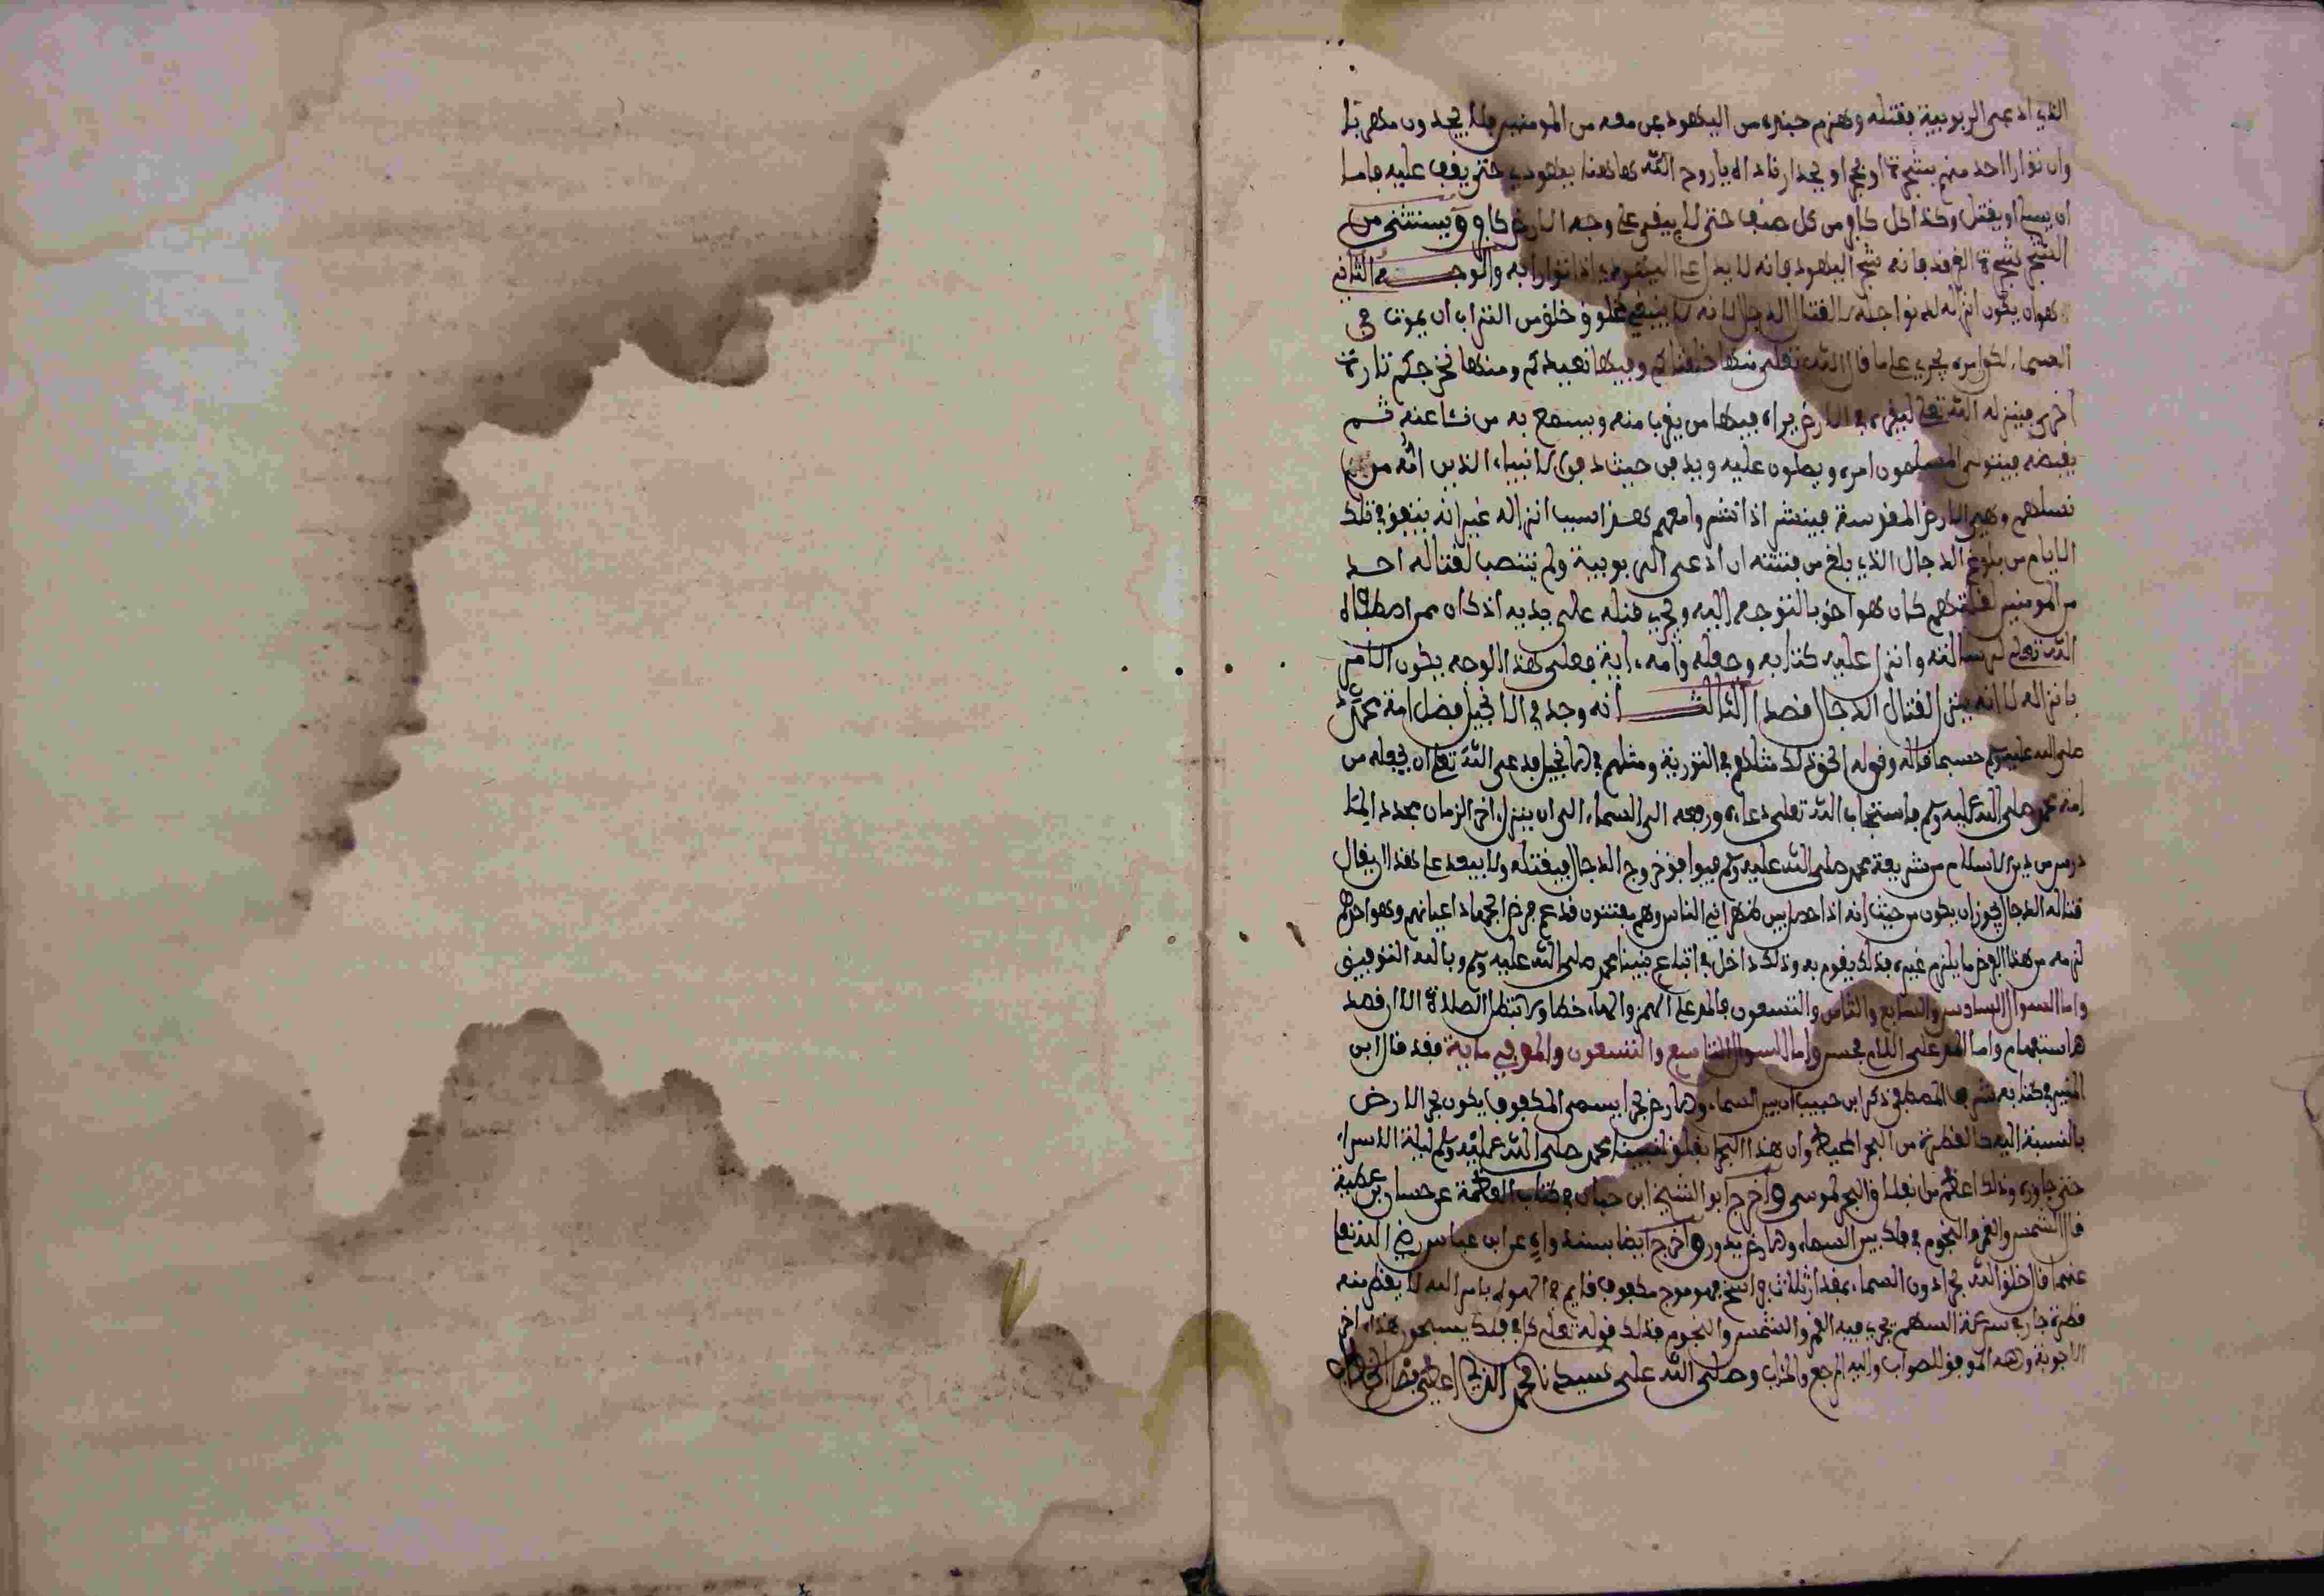 الذي ادعى الربوبية فقتله وهزم جنده من اليهود بمن معه من المومنين فلا يجدون مهربا
وان توارا احد منهم بشجرة او بحجر او بجدار نادا يا روح الله هاهنا يهودي حتى يقف عليه فاما
ان يسلم او يقتل وكذا كل كافر من كل صنف حتى لا يبقى على وجه الارض كافر ويستثنى من
الشجر شجرة الغرقد فانه شجر اليهود فانه لا يدل على اليهودي اذا توارا به والوجه الثاني
هو ان يكون انزاله لدنو اجله لا لقتال الدجال لانه لا ينبغي لمخلوق خلق من التراب ان يموت في
السماء لكن امره يجري على ما قال الله تعلى منها خلقناكم وفيها نعيدكم ومنها نخرجكم تارة
اخرى فينزله الله تعلى ليقره في الارض يراه فيها من يقرب منه ويسمع به من نشا عنه ثم
يقبضه فيتولى المسلمون امره ويصلون عليه ويدفن حيث دفن الانبياء الذين امه مريم من
نسلهم وهي الارض المقدسة فينشر اذا نشر وامعهم هذا سبب انزاله غير انه يتفق في تلك
الايام من بلوغ الدجال الذي بلغ من فتنته ان ادعى الربوبية ولم ينتصب لقتاله احد
من المومنين لقلتهم كان هو احق بالتوجه اليه ويجري قتله على يديه اذ كان ممن اصطفاه
الله تعلى لرسالته وانزل عليه كتابه وجعله وامه اية فعلى هذا الوجه يكون الامر
بانزاله لا انه ينزل لقتال الدجال قصدا الثالث انه وجد في الانجيل فضل امة محمد
صلى الله عليه وسلم حسبما قاله وقوله الحق ذلك مثلهم في التورية ومثلهم في الانجيل فدعى الله تعلى ان يجعله من
امة محمد صلى الله عليه وسلم فاستجاب الله تعلى دعاءه ورفعه الى السماء الى ان ينزل اخر الزمان مجددا لما
درس من دين الاسلام من شريعة محمد صلى الله عليه وسلم فيوافق خروج الدجال فيقتله ولا يبعد على هذا ان يقال
قتاله الدجال يجوز ان يكون من حيث انه اذا حصل بين ظهراني الناس وهم مفتتنون قد عم فرض الجهاد اعيانهم وهو احدهم
لزمه من هذا الفرض ما يلزم غيره فلذلك يقوم به وذلك داخل في اتباع نبينا محمد صلى الله عليه وسلم وبالله التوفيق
واما السوال السادس والسابع والثامن والتسعون فالمد على الهمز والهاء خطا ولا تبطل الصلاة الا ان قصد
الاستفهام واما المد على اللام فحسن واما السوال التاسع والتسعون والموفي ماية فقد قال ابن
المنير في كتابه شرف المصطفى ذكر ابن حبيب ان بين السماء والارض بحرا يسمى المكفوف يكون بحر الارض
بالنسبة اليه كالقطرة من البحر المحيط وان هذا البحر انفلق لنبينا محمد صلى الله عليه وسلم ليلة الاسراء
حتى جاوزه وذلك اعظم من انفلاق البحر لموسى واخرج ابو الشيخ ابن حيان في كتاب العظمة عن حسان بن عطية
قال الشمس والقمر والنجوم في فلك بين السماء والارض يدور واخرج ايضا بسند واه عن ابن عباس رضي الله تعلى
عنهما قال خلق الله بحرا دون السماء بمقدار ثلاث فراسخ فهو موج مكفوف قايم في الهواء بامر الله لا يقطر منه
قطرة جار في سرعة السهم يجري فيه القمر والشمس والنجوم فذلك قوله تعلى كل في فلك يسبحون هذا اخر
الاجوبة والله الموفق للصواب واليه المرجع والمئاب وصلى الله على سيدنا محمد الذي اعطي فصل الخطاب